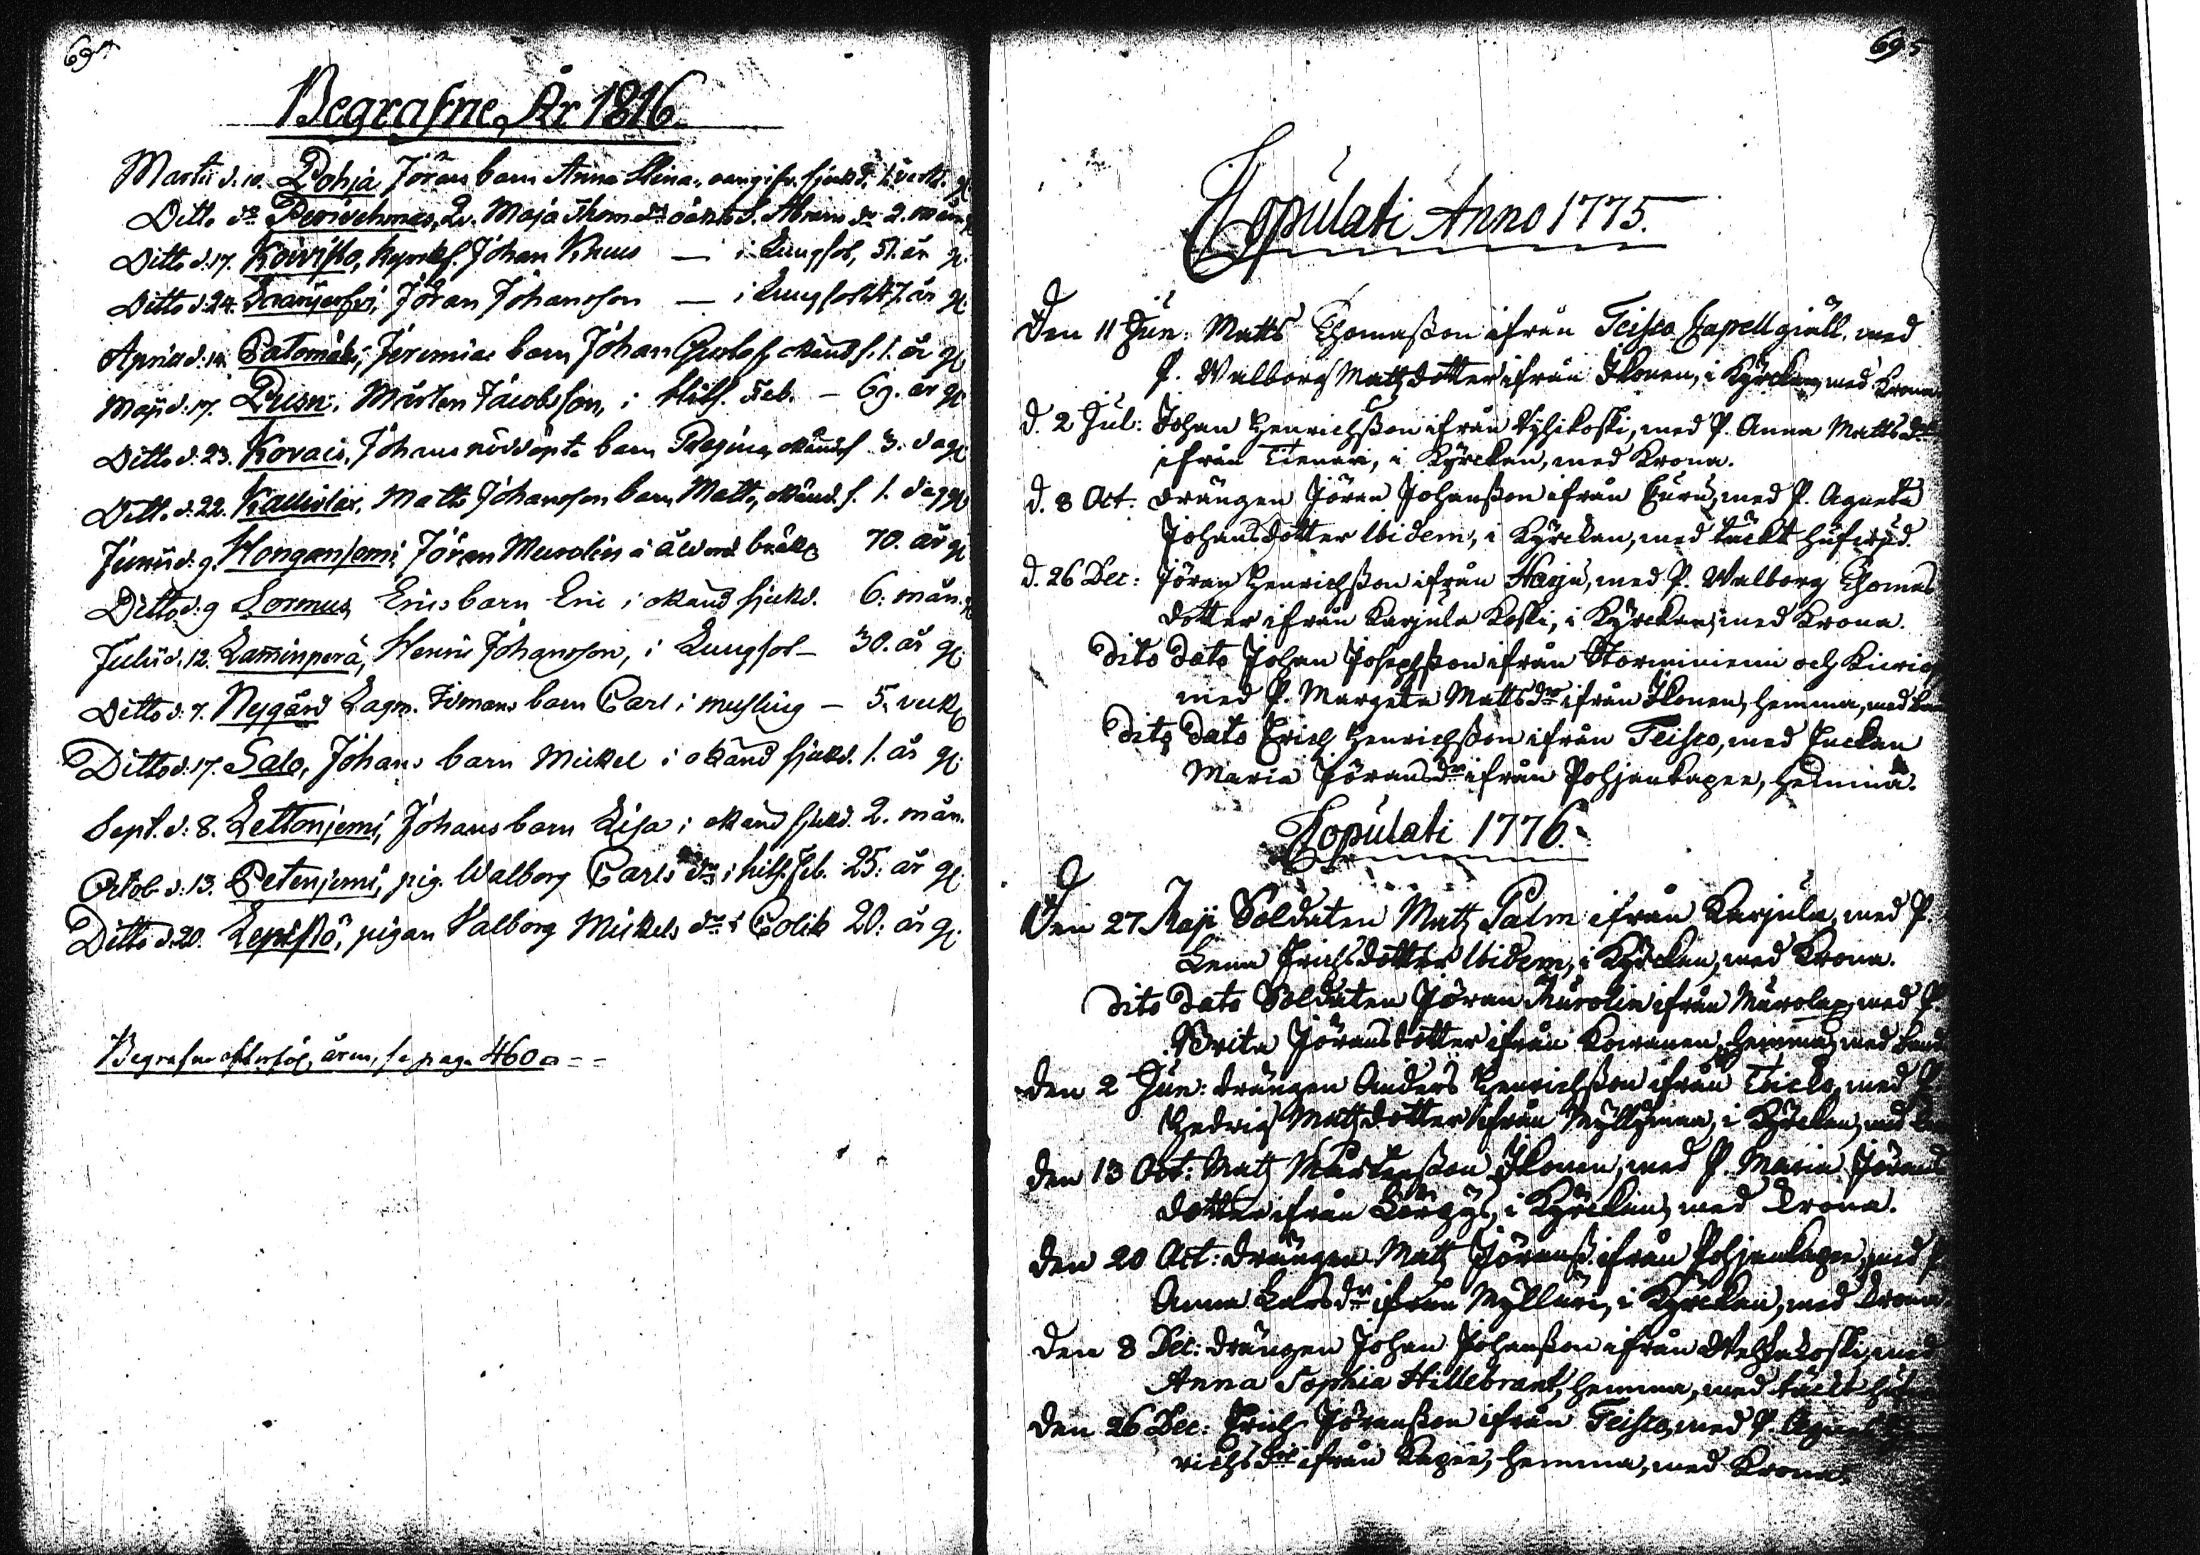 694
Begrafne År 1816.
Martii d. 10. Pohja Jöran barn Anna Stina, oangifv. sjukd. 1. veck. gl.
Ditto do Perivehmas, Ex. Maja Thomædr Abram 2. mån.
Ditto d. 17. Koivisto, Kyrckf. Johan Knuus — i Lungsot, 51. år gl.
Ditto d. 24. Jöran Johansson — i Lungsot 47. år gl.
April d. 14. Palomäki, Jeremias barn Johan Gustaf, okänd s. 1. år gl.
Maji d. 17. Mårten Jacobsson, i Hitz. Feb. — 69. år gl.
Ditto d. 23. Kovais, Johans nöddöpte barn Regina, okänd s. 3. dag.
Ditto d. 22. Matts Johansson barn Matts, okänd. s. 1. dag gl.
Junii d. 9. Honganjemi, Jöran Murolin i ålderd. bräckl. 70. år gl.
Ditto d. 9 Lormus, Erics barn Eric i okänd sjukd. 6. mån.
Julii d. 12. Lamminperä, Henric Johansson, i Lungsot — 30. år gl.
Ditto d. 7. Nygård Lagm. Idmans barn Carl i mesling — 5. veck
Ditto d. 17. Salo, Johans barn Mickel i okänd sjukd. 1. år gl.
Sept. d: 8. Lettonjemi, Johans barn Lisa i okänd sjukd. 2. mån.
Octob. d: 13. Petenjemi, pig. Walborg Carls dr i hitz. feb. 25: år gl.
Ditto d. 20. Lepistö, pigan Valborg Mickels dr i Colik 20: år gl.
Begrafne efterföl. åren, se pag. 460

695
Copulati Anno 1775.
Den 11 Jun: Matts Thomasson ifrån Teisco Capellgiäll. med
P. Walborg Mattsdotter ifrån Ikonen, i Kyrckan, med Krona
d. 2 Jul: Johan Henrichsson ifrån Kyhikoski, med P. Anna Matts dotter
ifrån Tienari, i Kyrckan, med Krona.
d. 8 Oct: Drängen Jöran Johansson ifrån Curu, med P. Agneta
Johansdotter ibidem, i Kyrckan, med täckt hufvud.
d. 26 Dec: Jöran Henrichsson ifrån Harju, med P. Walborg Thomas
dotter ifrån Karjula Koski, i Kyrckan, med Krona.
Dito Dato Johan Josephsson ifrån Storminiemi och
med P. Margeta Matts dr ifrån Ikonen, hemma, med
Dito Dato Erich Henrichsson ifrån Teisco, med Enckan
Maria Jörans dr ifrån Pohjankapee, hemma.
Copulati 1776.
Den 27 Maji Soldaten Matz Palm ifrån Karjula, med P.
Lena Erichsdotter ibidem, i Kyrckan, med Krona.
Dito Dato Soldaten Jöran Murolin ifrån Murolax, med P.
Brita Jöransdotter ifrån Koivanen, hemma, med
Den 2 Jun: Drängen Anders Henrichsson ifrån med P.
Hedvig Mattzdotter ifrån i Kyrckan, med
Den 13 Oct: Matz Mårtensson Ikonen, med P. Maria Jörans
dotter ifrån i Kyrckan, med Krona.
Den 20 Oct: Drängen Matz Jöranss. ifrån Pohjankapee, med P.
Anna Lars dr ifrån Mylläri, i Kyrckan, med Krona.
Den 8 Dec: Drängen Johan Johansson ifrån med
Anna Sophia Hillebrant, hemma, med täckt
Den 26 Dec: Erich Jöransson ifrån Teisco, med P.
richs dr ifrån Kapee, hemma, med Krona.